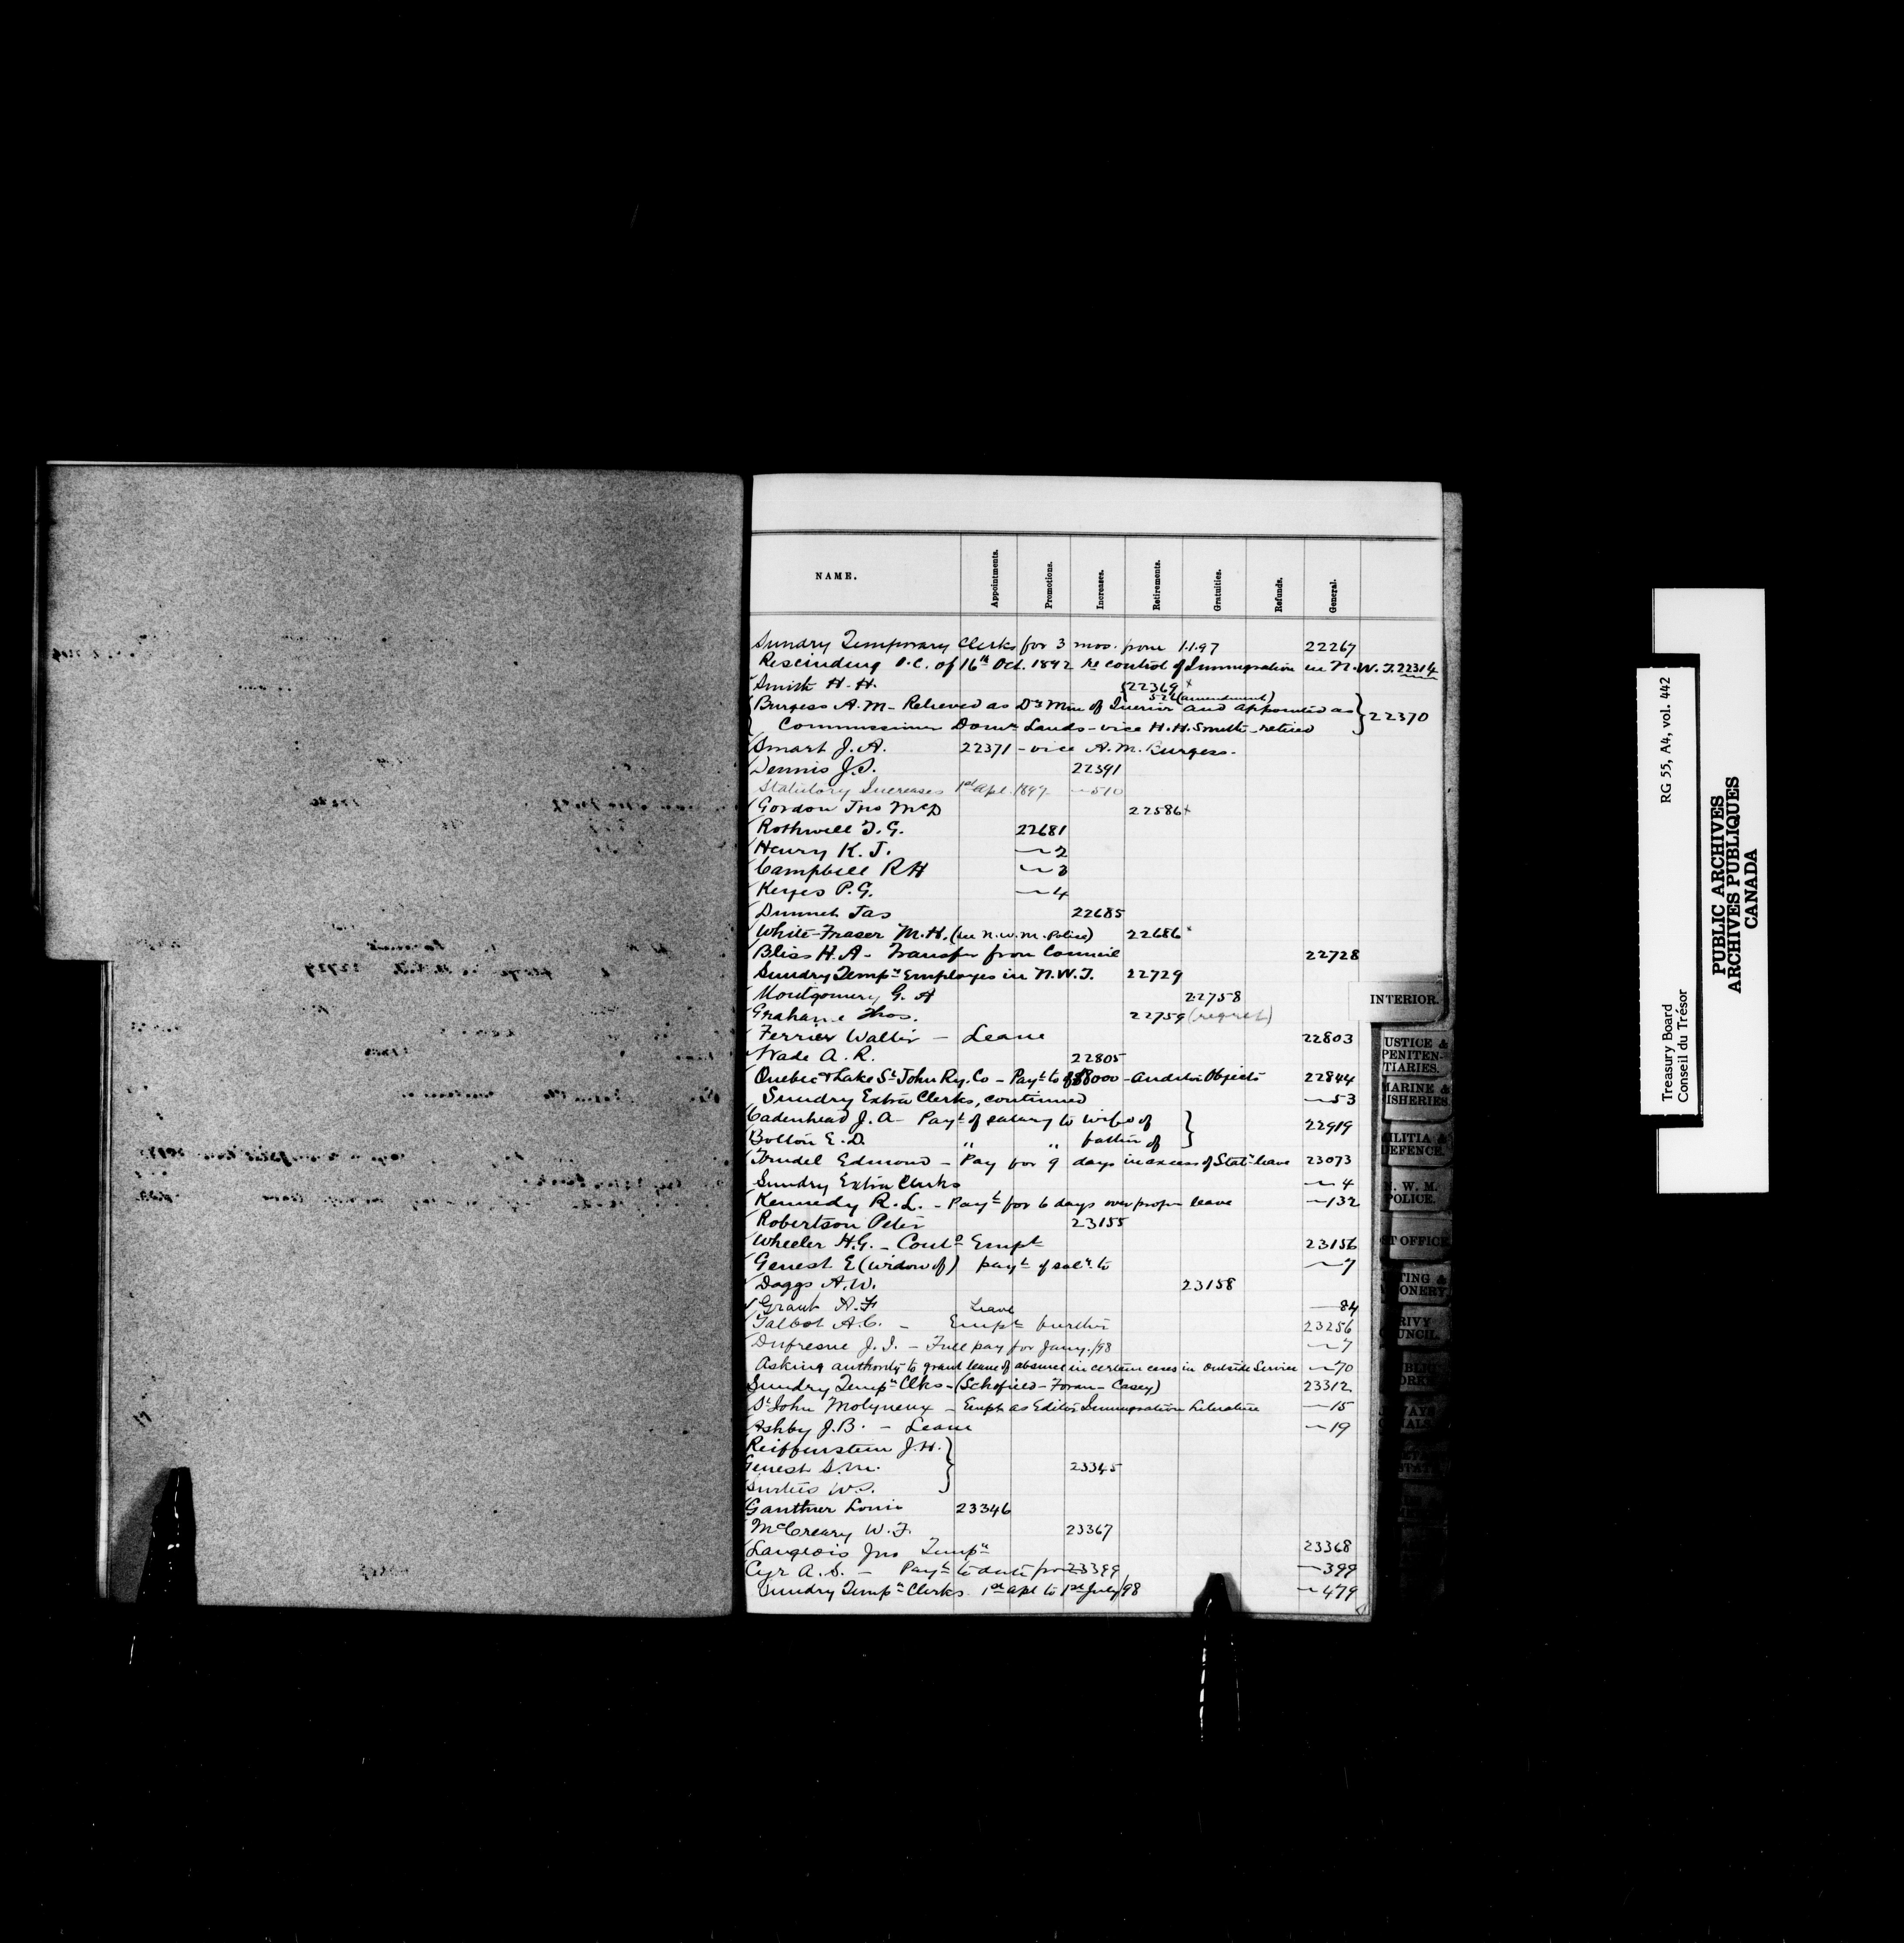 NAME. Appointments. Promotions. Increases. Retirements. Gratuities. Refunds. General.
Sundry Temporary Clerks for 3 mos. from 1.1.97 22267
Rescinding O.C. of 16th Oct. 1892 re control of Immigration in N.W.T. 22314
Smith H.H. 22369 x
522 (amendment)
Burgess A.M - Relieved as Dy Min of Interior and appointed as
Commissioner Domn Lands - vice H.H. Smith - retired 22370
Smart J.A. 22371 - vice A.M. Burgess.
Dennis J.S. 22391
Statutory Increases 1st Apl. 1897 510
Gordon Jno McD 22586 x
Rothwell T.G. 22681
Henry K.J. 〃2
Campbell RH 〃3
Keyes P.G. 〃4
Dunnet Jas 22685
White-Fraser M.H. (see N.W.M. Police) 22686 x
Bliss H.A - Transfer from Council 22728
Sundry Tempy Employes in N.W.T. 22729
Montgomery G.A 22758
Grahame Thos. 22759 (regret)
Ferrier Walter - Leave 22803
Wade A.R. 22805
Quebec & Lake St John Ry. Co - Payt to of $8000 - Auditor Objects 22844
Sundry Extra Clerks, continued 〃53
Cadenhead J.A - Payt of salary to wife of
Bolton E.D. 〃 〃 father of 22919
Trudel Edmond - Pay for 9 days in excess of Staty leave 23073
Sundry Extra Clerks 〃4
Kennedy R.L. - Payt for 6 days over proper leave 〃132
Robertson Peter 23155
Wheeler H.G. - Contd Empt 23156
Genest E (widow of) payt of saly to 〃7
Doggs A.W. 23158
Grant A.F Leave 84
Talbot A.C. - Empt further 23256
Dufresne J.I. - Full pay for Jany./98 〃7
Asking authority to grant leave of absence in certain cases in Outside Service 〃70
Sundry Tempy Clks - (Schofield - Foran - Casey) 23312
St John Molyneux - Empt as Editor Immigration Literature 〃15
Ashby J.B. - Leave 〃19
Reiffenstein J.H.
Genest S.M. 23345
Surtees W.S.
Gauthier Louis 23346
McCreary W.F. 23367
Langlois Jno Tempy 23368
Cyr A.S. - Payt to date from 23399 〃399
Sundry Tempy Clerks 1st Apl to 1st July/98 〃479
INTERIOR.
USTICE &
PENITEN-
TIARIES.
MARINE &
ISHERIES
ILITIA &
DEFENCE.
N. W. M.
POLICE.
ST OFFICE
TING &
ONERY
RIVY
OUNCIL.
Treasury Board RG 55, A4, vol. 442
Conseil du Trésor
PUBLIC ARCHIVES
ARCHIVES PUBLIQUES
CANADA